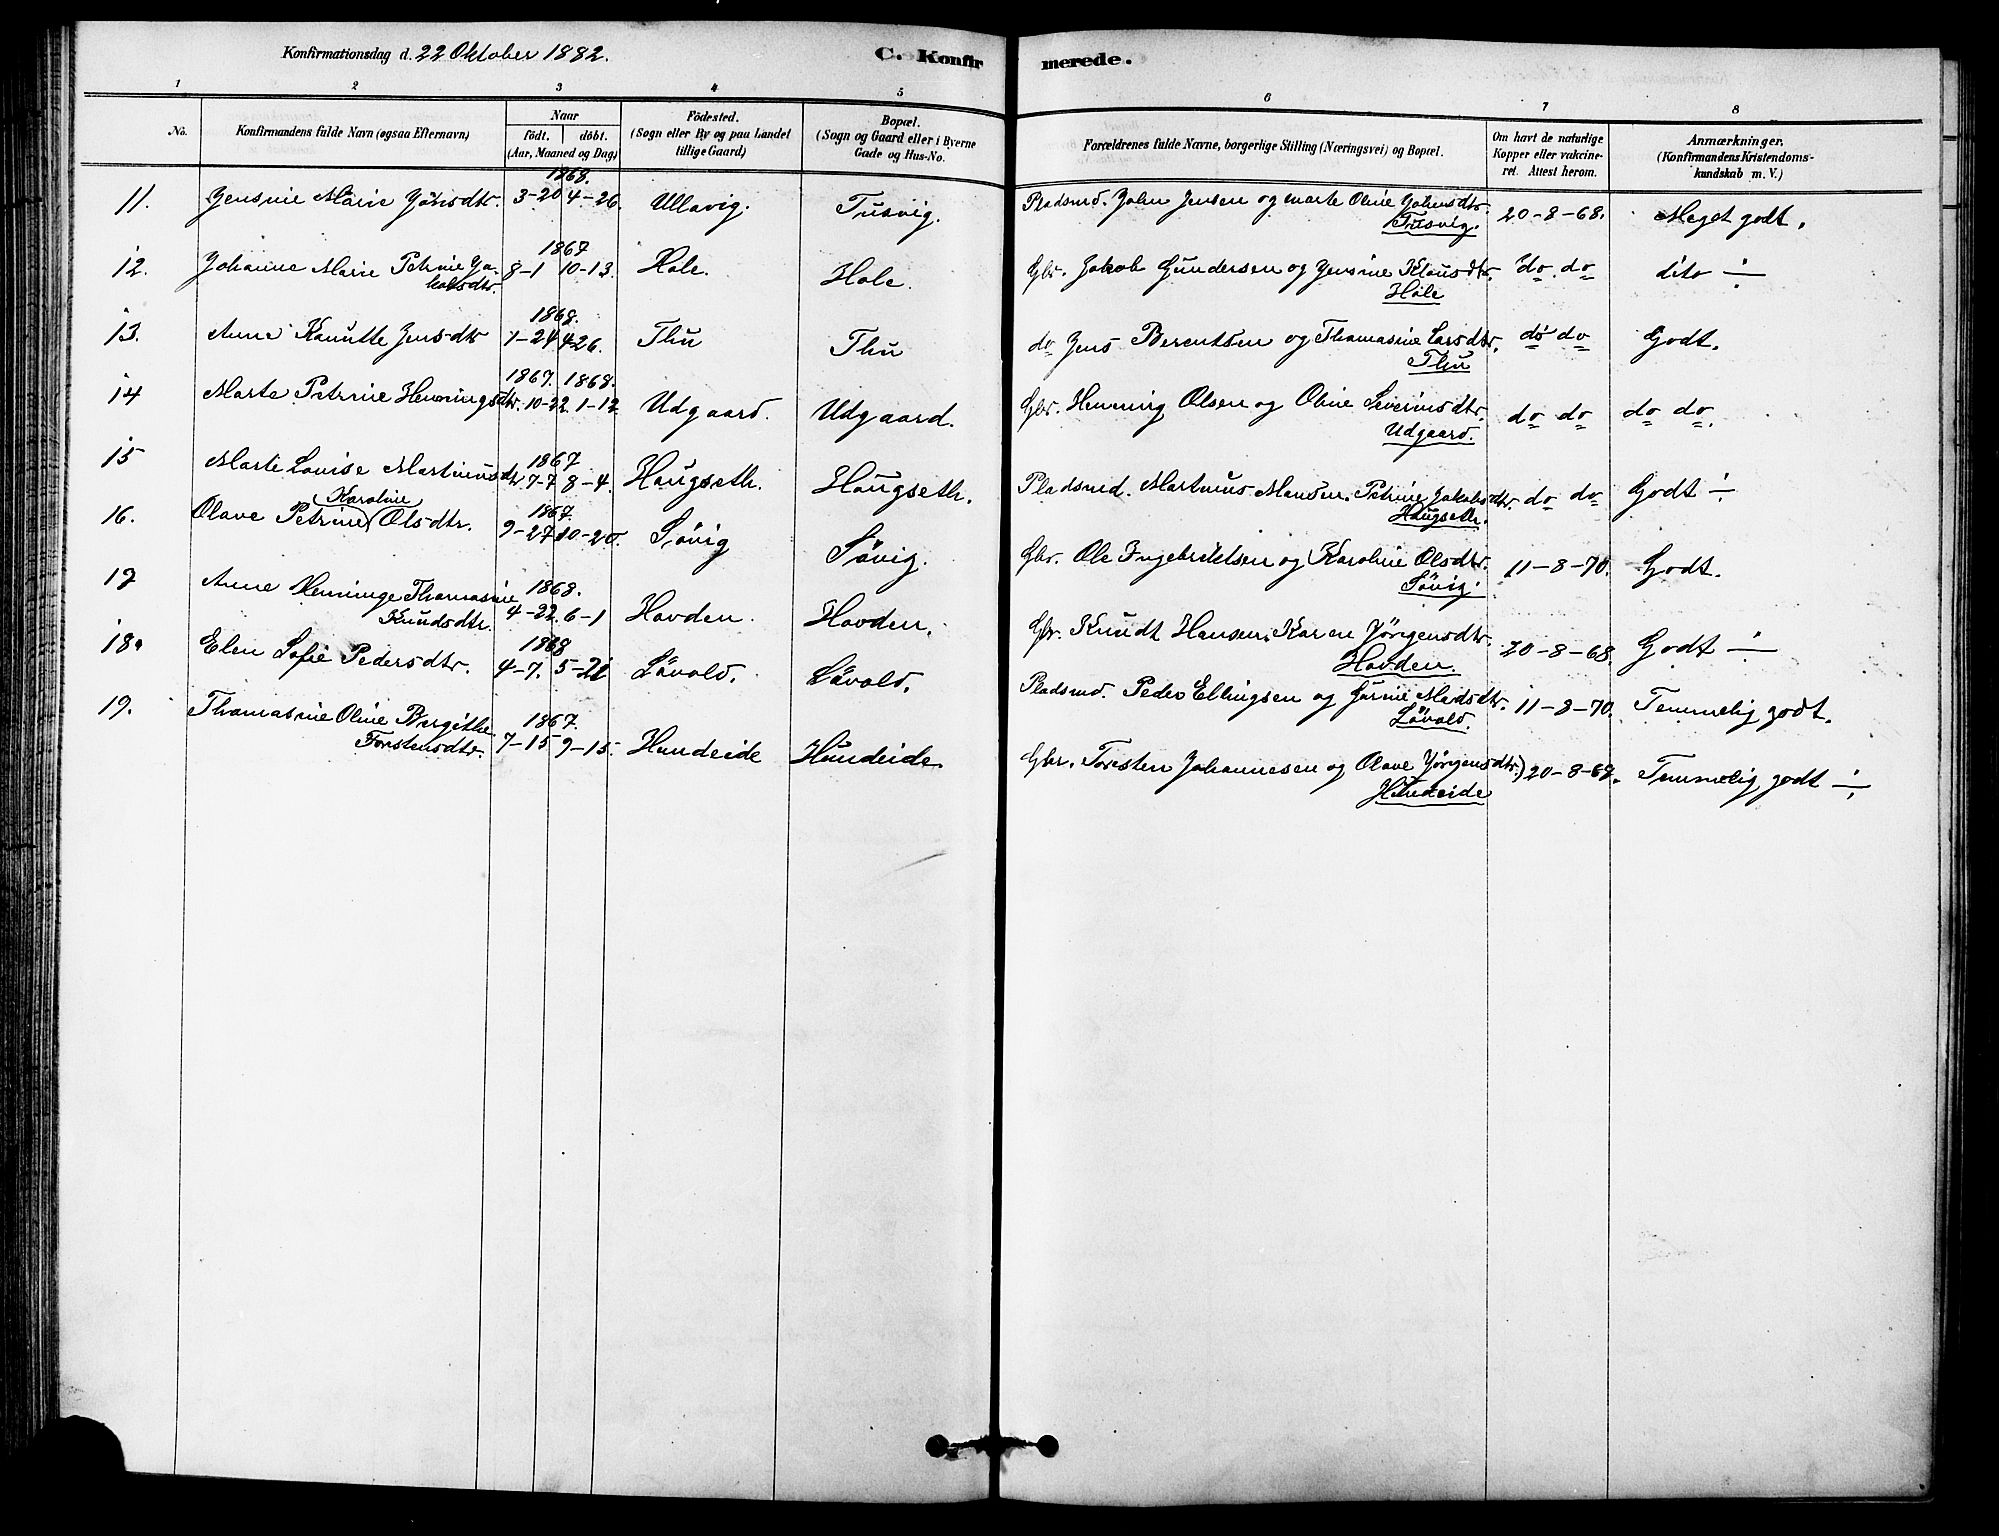 Konfirmationsdag d. 22 Oktober 1882.
C. Konfirmerede.
1 2 3 4 5 6 7 8
No.
Konfirmandens fulde Navn (ogsaa Efternavn)
Naar
födt. döbt.
(Aar, Maaned og Dag)
Födested.
(Sogn eller By og paa Landet
tillige Gaard)
Bopæl.
(Sogn og Gaard eller i Byerne
Gade og Hus-No.
Forældrenes fulde Navne, borgerlige Stilling (Næringsvei) og Bopæl.
Om havt de naturlige
Kopper eller vakcine-
ret. Attest herom.
Anmærkninger.
(Konfirmandens Kristendoms-
kundskab m. V.)
1868.
11. Jensine Marie Jönsdtr. 3-20 4-26. Ullavig. Tusvig. Pladsmd. John Jensen og Marte Oline Johnsdtr. 20-8-68. Meget godt.
Tusvig.
1867
12. Johanne Marie Petrine Ja- 8-1 10-13. Hole. Hole. Gbr. Jakob Gundersen og Jensine Klausdtr. do. do dito ÷
kobsdtr. Hole
1868.
13. Anne Kanutte Jensdtr 1-24 4-26. Thu Thu do Jens Berentsen og Thomasine Larsdtr. do do Godt.
Thu
1867. 1868.
14 Marte Petrine Henningsdtr. 10-22. 1-12 Udgaard. Udgaard. Gbr. Henning Olsen og Oline Severinsdtr. do do do do.
Udgaard.
1867
15 Marte Lovise Martinusdtr 7-7 8-4. Haugseth. Haugseth. Pladsmd. Martinus Monsen. Petrine Jakobsdtr. do do Godt ÷
Haugseth.
Karoline 1867.
16. Olave Petrine Olsdtr. 9-27 10-20. Sövig Sövig. Gbr. Ole Ingebriktsen og Karoline Olsdtr. 11-8-70. Godt.
Sövig.
1868.
17 Anne Henninge Thomasine 4-22. 6-1 Hovden. Hovden. Gbr. Knudt Hansen. Karen Jörgensdtr. 20-8-68. Godt ÷
Knudsdtr. Hovden.
1868
18. Elen Sofie Pedersdtr. 4-7. 5-21 Lövold. Lövold. Pladsmd. Peder Ellingsen og Gurine Madsdtr. 11-8-70. Temmelig godt.
Lövold.
1867.
19. Thomasine Oline Birgithe 7-15 9-15. Hundeide Hundeide. Gbr. Torsten Johannesen og Olave Jörgensdtr.) 20-8-68. Temmelig godt ÷
Torstensdtr. Hundeide